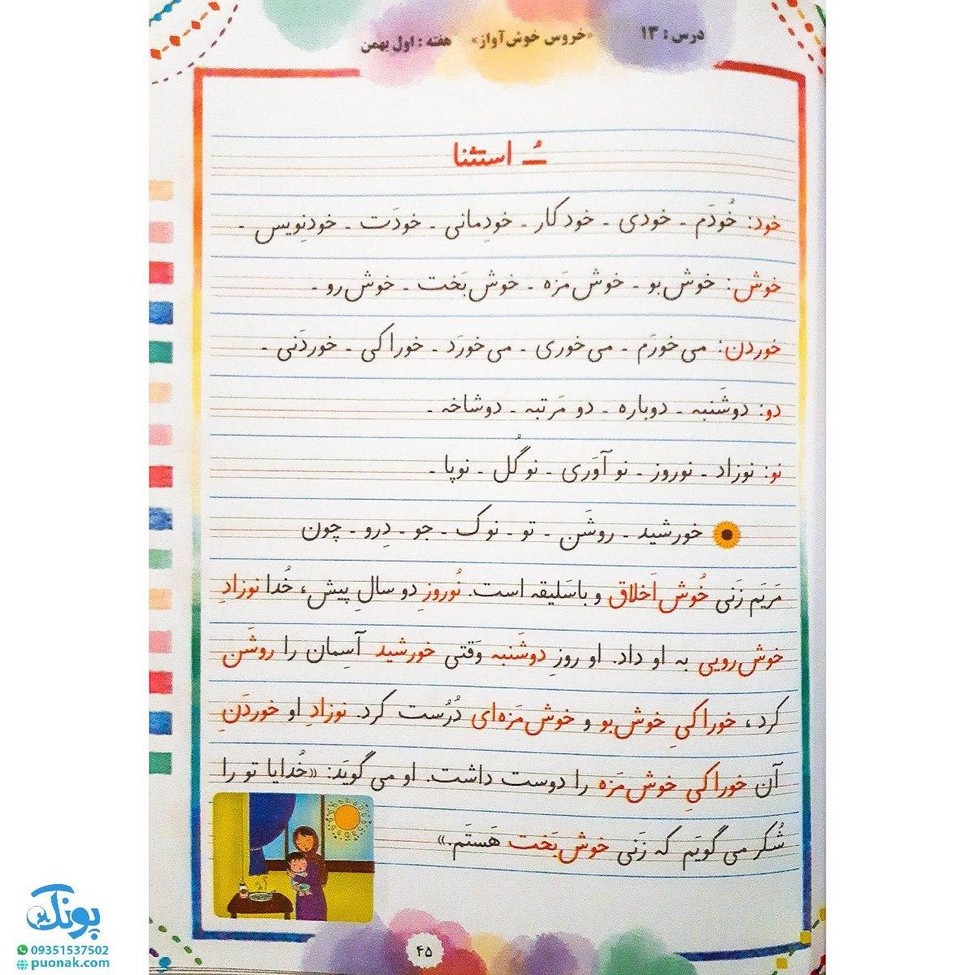 درس : ۱۳ «خروس خوش‌آواز» هفته : اول بهمن
ـُ استثنا
خود: خُودَم ـ خودی ـ خودکار ـ خودِمانی ـ خودَت ـ خودنِویس ـ
خوش: خوش‌بو ـ خوش‌مَزه ـ خوش‌بَخت ـ خوش‌رو ـ
خوردن: می‌خورَم ـ می‌خوری ـ می‌خورَد ـ خوراکی ـ خوردَنی ـ
دو: دوشَنبه ـ دوباره ـ دو مَرتبه ـ دوشاخه ـ
نو: نوزاد ـ نوروز ـ نوآوَری ـ نوگُل ـ نوپا ـ
خورشید ـ روشَن ـ تو ـ نوک ـ جو ـ دِرو ـ چون
مَریَم زَنی خُوش‌اَخلاق و باسَلیقه است. نُوروزِ دو سالِ پیش، خُدا نوزادِ
خوش‌رویی به او داد. او روزِ دوشَنبه وَقتی خورشید آسِمان را روشَن
کرد، خوراکیِ خوش‌بو و خوش‌مَزه‌ای دُرُست کرد. نوزادِ او خوردَنِ
آن خوراکیِ خوش‌مَزه را دوست داشت. او می‌گویَد: «خُدایا تو را
شُکر می‌گویَم که زَنی خوش‌بَخت هَستَم.»
۴۵
پونک
09351537502
puonak.com